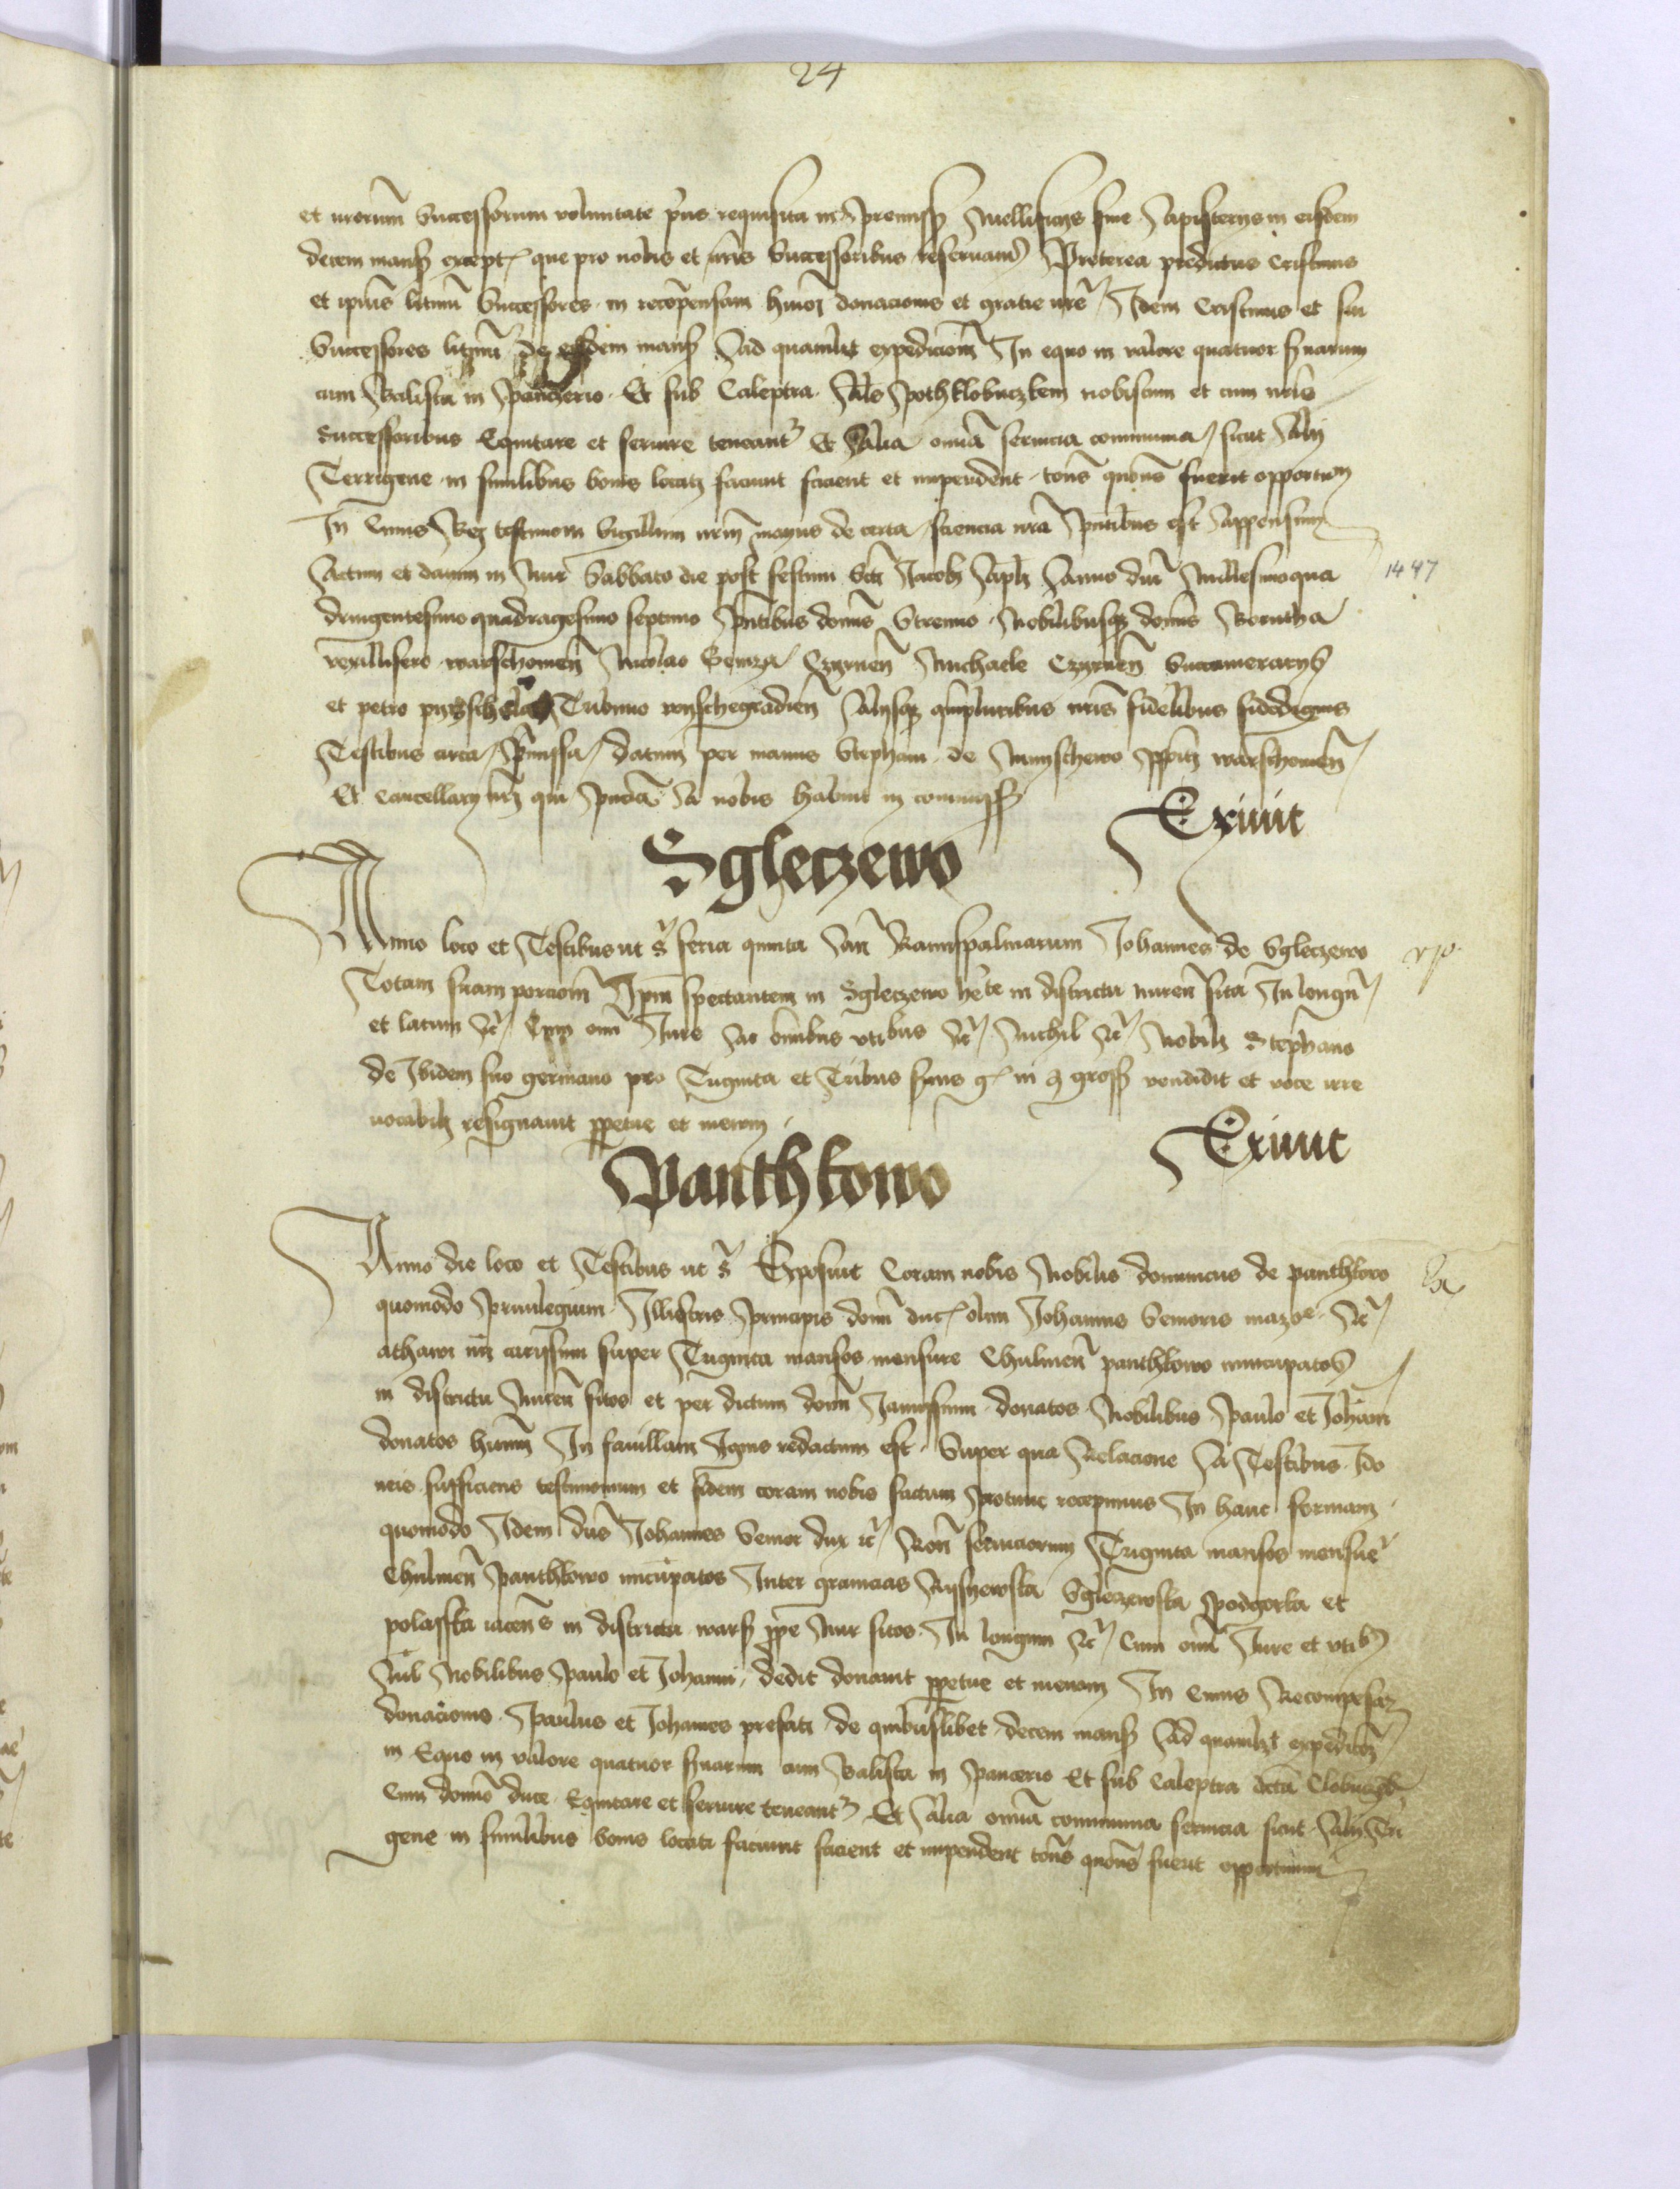 24
et nrorum Successorum voluntate pus requisita in premiss Mellificys sive Apisterys in eisdem
decem mans except que pro nobis et nris Successoribus reservam Preterea predictus Cristinus
et ipius litimi Successores in recopensam hmoi donacionis et gratie nre Idem Cristinus et sui
Successores litimi de eisdem mans Ad quamlit expedicom In equo in valore quatuor sxarum
cum Balista in Pancerio Et sub Caleptra Als Pothklobuczkem nobiscum et cum nris
Successoribus Equitare et servire teneant Et Alia omia servicia communia sicut Aly
Terrigene in similibus bonis locati faciunt facient et impendent tocns quocns fuerit opportun
In Cuius Rei testimom Sigillum nrm maius de certa sciencia nra Pntibus est Appensum
Actum et datum in Nur Sabbato die post festum Scti Jacobi Apli Anno dni Millesimoqua
dringentesimo quadragesimo septimo Pntibus domis Strenuo Nobilibusqz domis Borutha
vexillifero warschouien Nicolao Gemza Czyrnen Michaele Czyrnen Succamerarys
et petro Tribuno wyschegradien Alysqz qmpluribus nris fidelibus fidedignis
Testibus circa Pmissa datum per manus Stephani de Mnyschewo Ppoiti warschouien
Et Cancellary nri qui Pntia A nobis habuit in commiss
1447
Exiuit
Sgleczewo
Anno loco et Testibus ut s feria quinta An Ramispalmarum Johannes de Sgleczewo
Totam suam porciom Ipm spectantem in Sgleczewo hete in districtu nuren sita In longu
et latum Etc Cum omi Jure Ac omibus vtibus Etc Nichil Etc Nobili Stephano
de Ibidem suo germano pro Triginta et Tribus sxgs g in gross vendidit et voce irre
uocabili resignauit ppetue et in ewm
Exiuit
Panthkowo
Anno die loco et Testibus ut s Exposuit Coram nobis Nobilis dominicus de panthkowo
quomodo priuilegium Illustris Principis domi duc olim Johannis Senioris mazoe Etc
athawi nri carissimi super Triginta mansos mensure Chulmen panthkowo nuncupatos
in districtu Nuren sitos et per dictum dom Janussium donatos Nobilibus Paulo et Johani
donatos In fauillam Ignis redactum est Super qua Relacione A Testibus Ido
neis sufficiens testimonium et fidem coram nobis factum Protunc recepimus In hanc formam
quomodo Idem dns Johannes Senior dux Etc Ron serviciorum Triginta mansos mensue
Chulmen Panthkowo nucupatos Inter granicias Sgleczewska Podgorka et
polasska iacens in districtu wars ppe Nur sitos In longum Etc Cum omi Jure et vtib
Nobilibus Paulo et Johanni dedit donauit ppetue et in ewm In Cuius Recompesaz
donacionis Paulus et Johannes prefati de quibuslibet decem mans Ad quamlibt expedicoz
in Equo in valore quatuor sxarum cum Balista in Pancerio Et sub Caleptra
Cum domo duce Equitare et servire teneant Et Alia omia communia servicia sicut Aly Tri
gene in similibus bonis locati faciunt facient et impendent tocns quocns fuerit opportunum